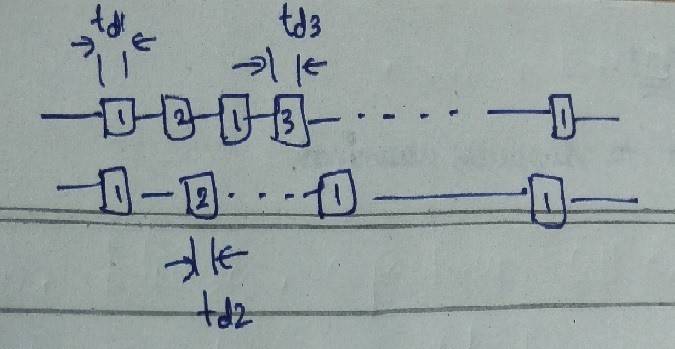 td1 td3
1 2 1 3 1
1 2 1 1
td2